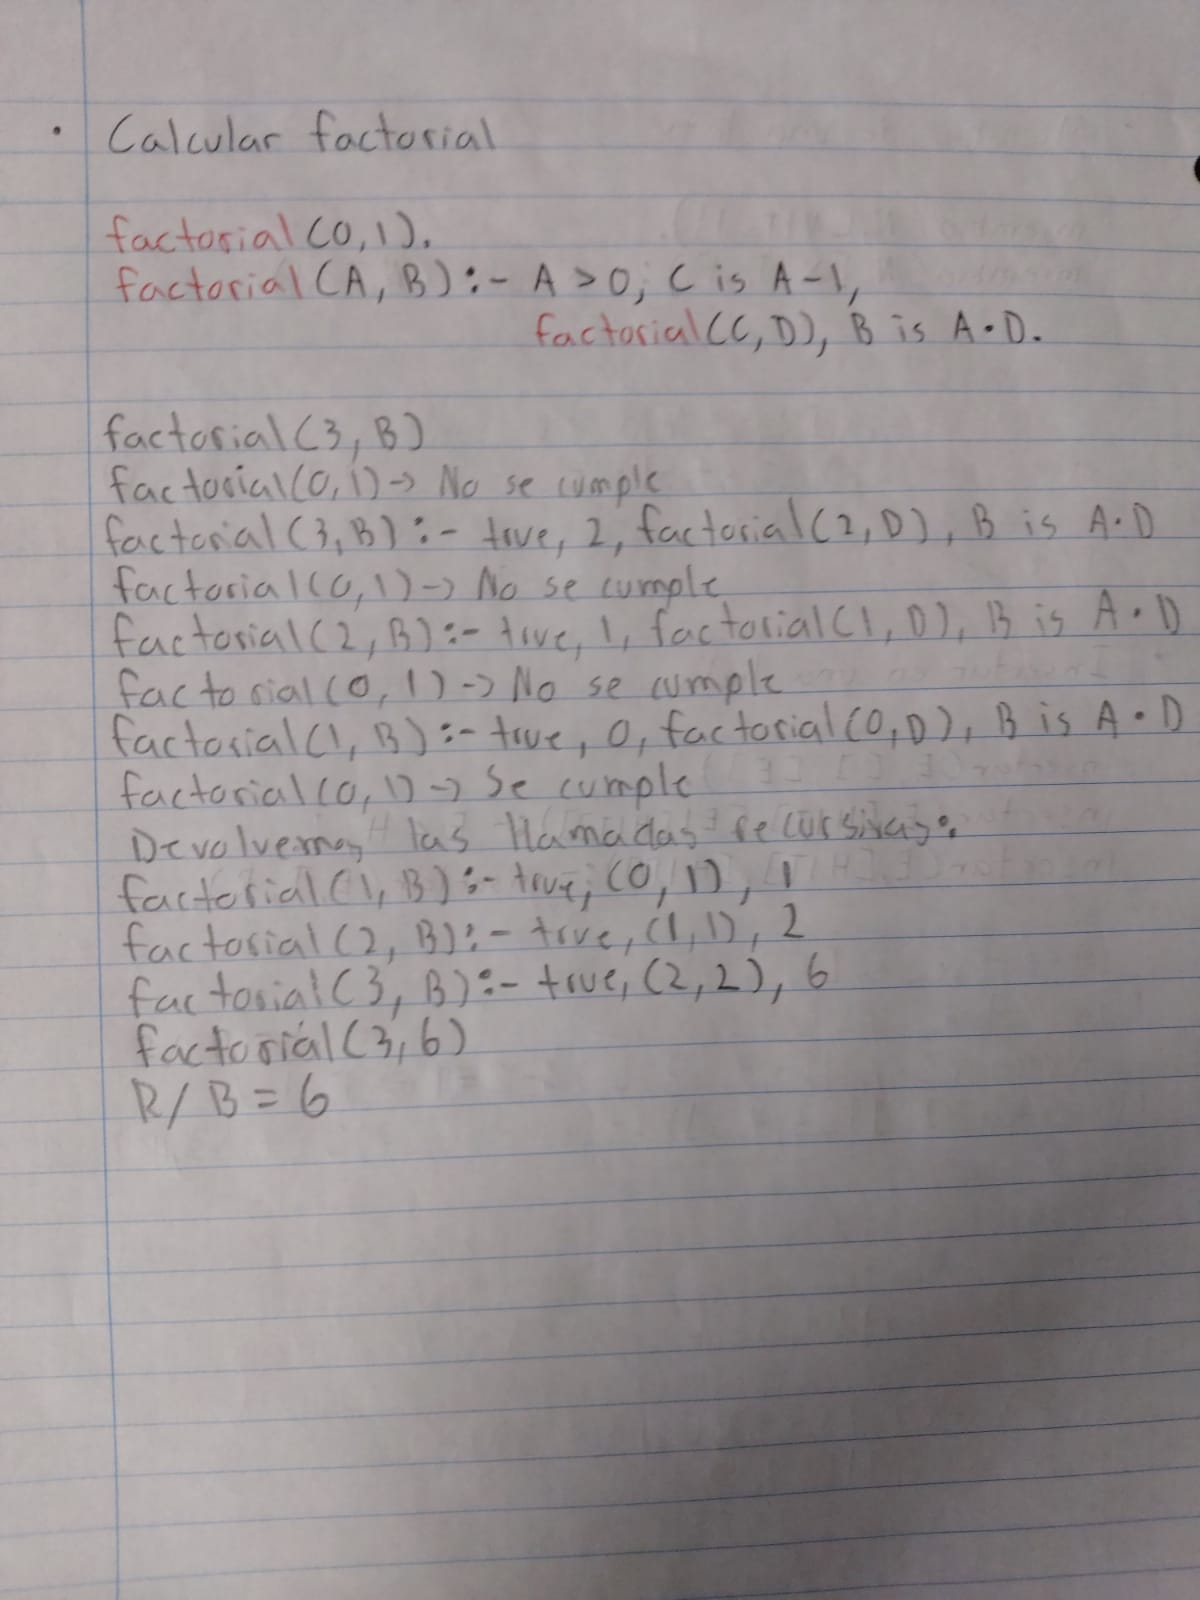 · Calcular factorial
factorial(0,1).
factorial(A,B):- A>0, C is A-1,
factorial(C,D), B is A·D.
factorial(3,B)
factorial(0,1)-> No se cumple
factorial(3,B):- true, 2, factorial(2,D), B is A·D
factorial(0,1)-> No se cumple
factorial(2,B):- true, 1, factorial(1,D), B is A·D
factorial(0,1)-> No se cumple
factorial(1,B):- true, 0, factorial(0,D), B is A·D
factorial(0,1)-> Se cumple
Devolvemos las llamadas recursivas:
factorial(1,B):- true, (0,1), 1
factorial(2,B):- true, (1,1), 2
factorial(3,B):- true, (2,2), 6
factorial(3,6)
R/ B = 6